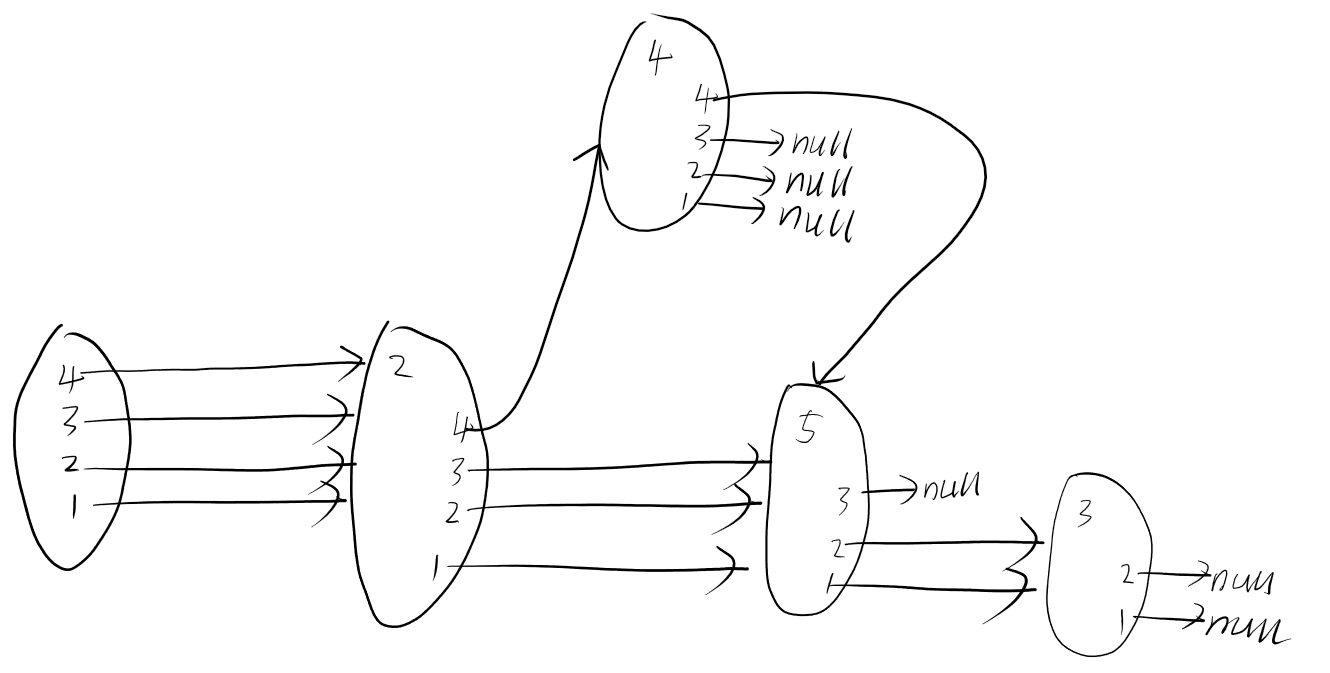 4
4
3 null
2 null
1 null
4
3
2
1
2
4
3
2
1
5
3 null
2
1
3
2 null
1 null